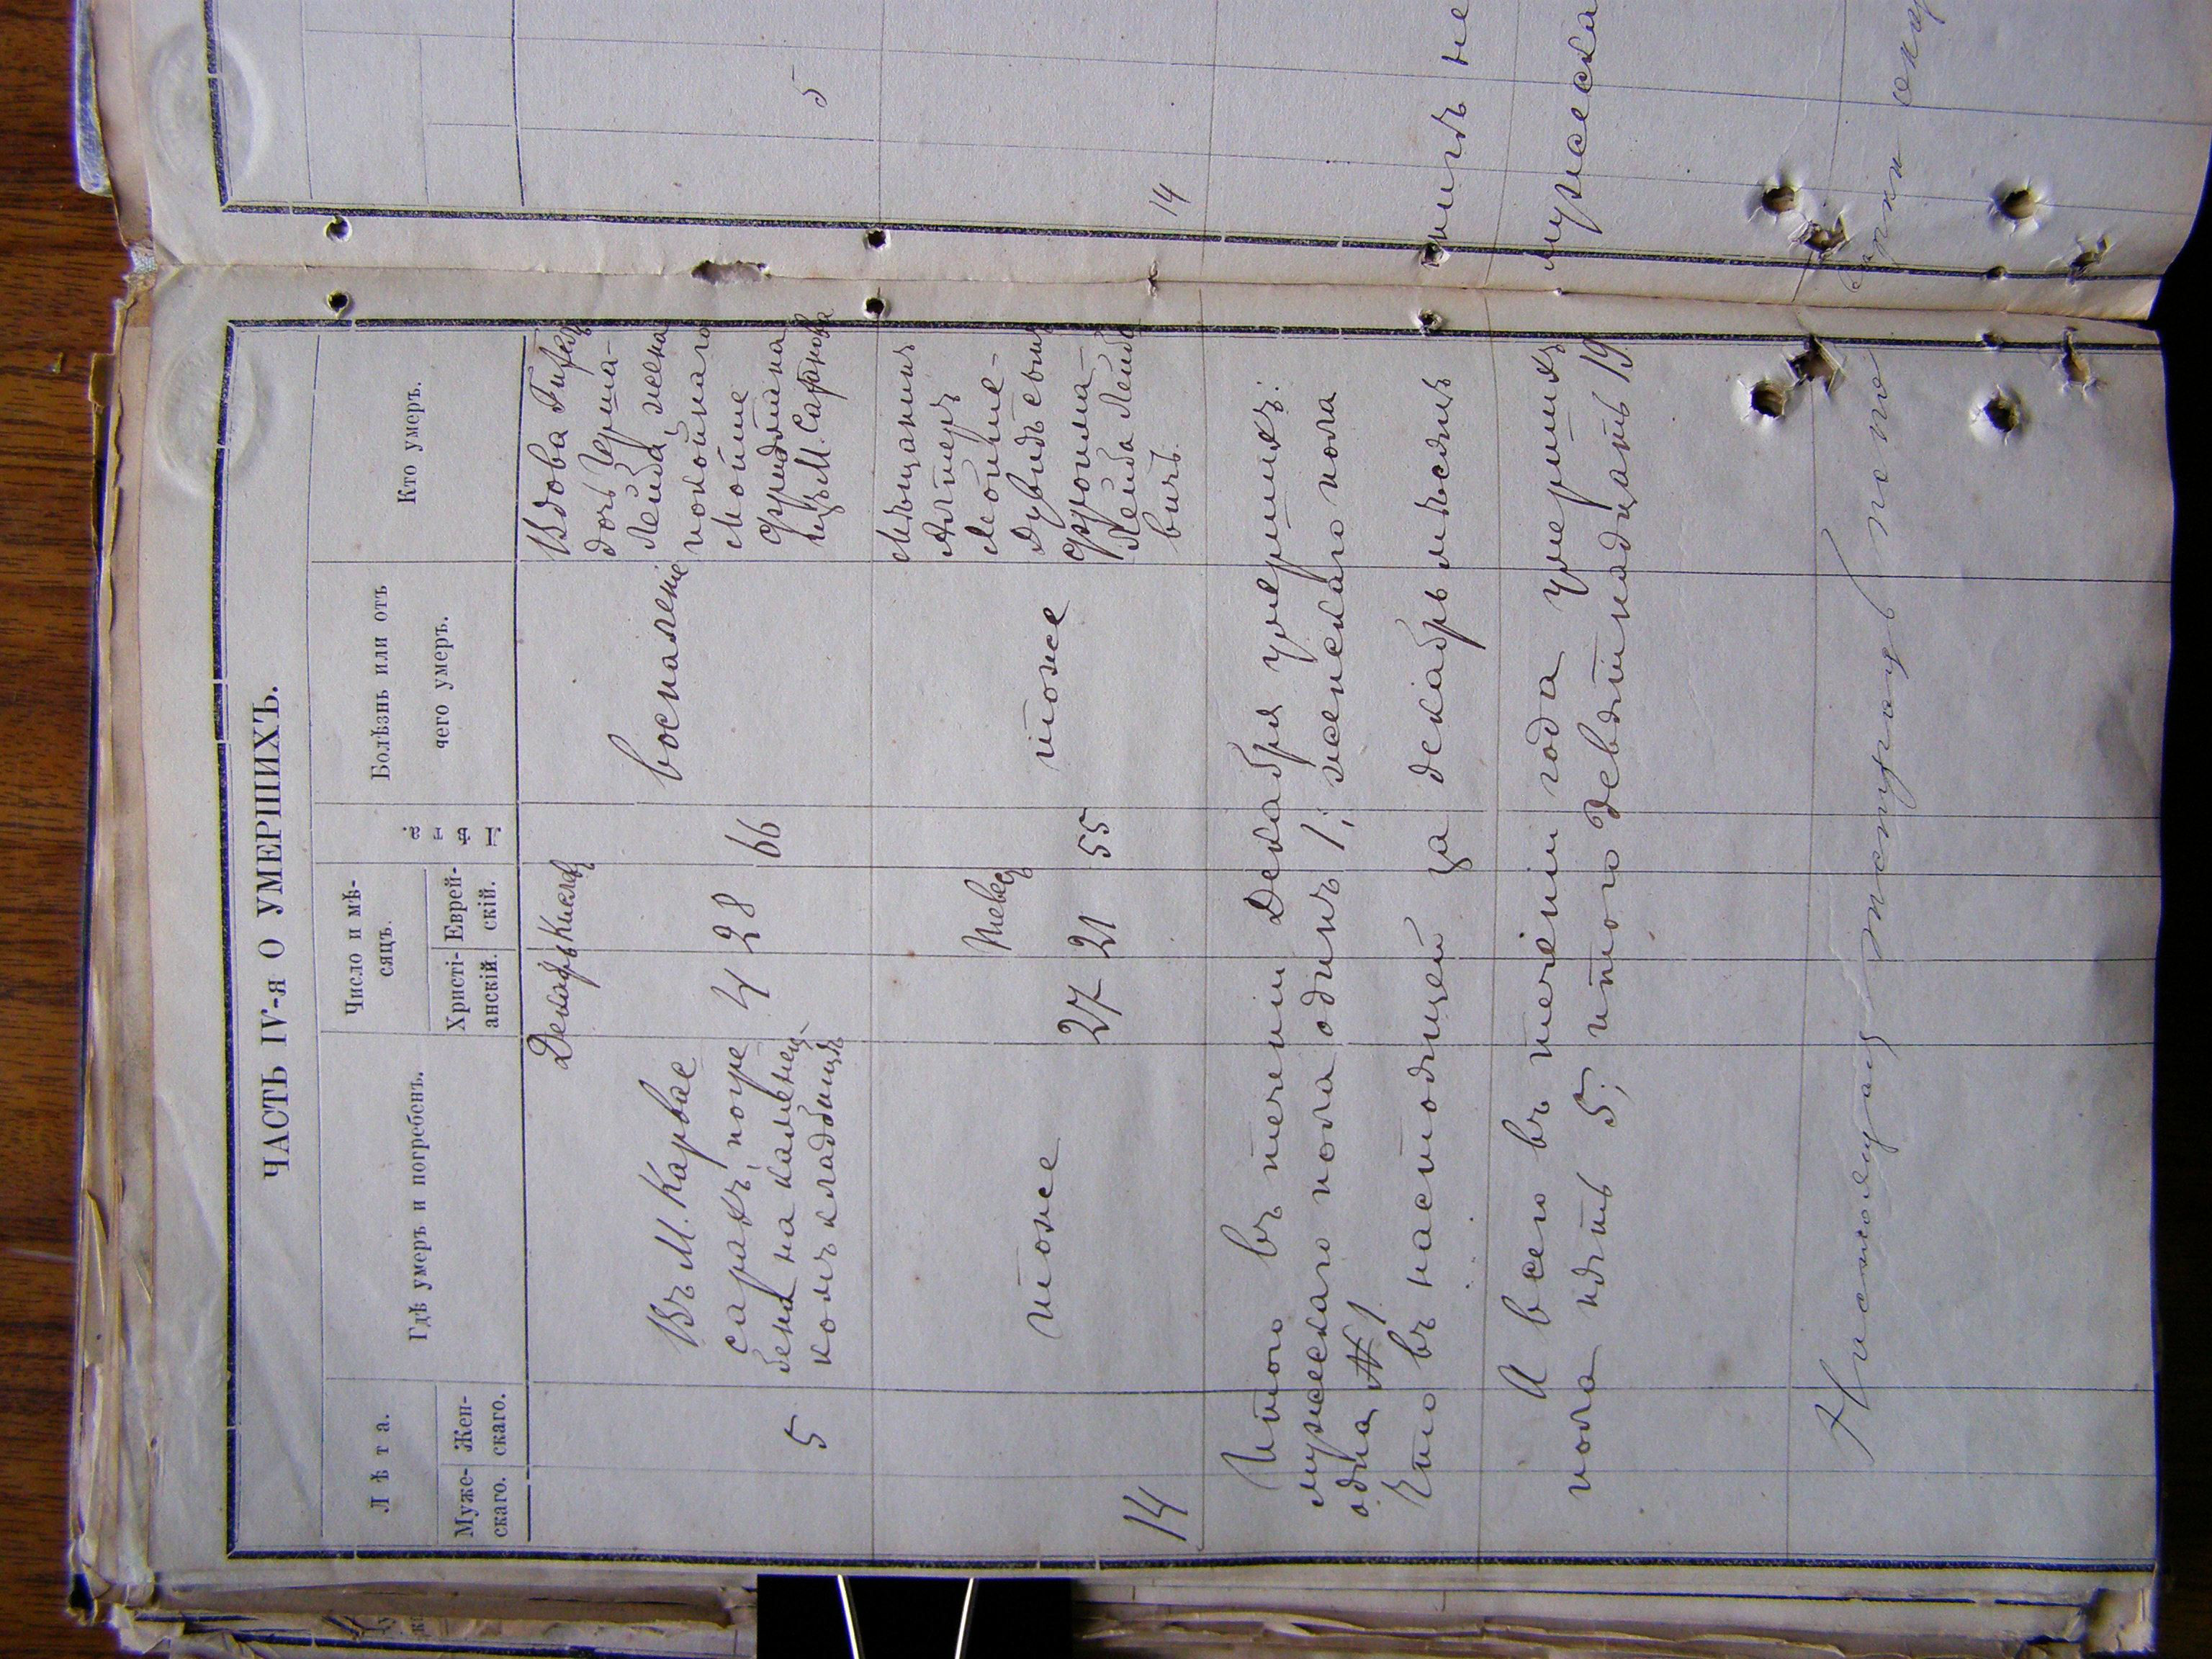 ЧАСТЬ IV-я О УМЕРШИХЪ.
Лѣта.
Муже-
скаго.
Жен-
скаго.
Гдѣ умеръ и погребенъ.
Число и мѣ-
сяцъ.
Христі-
анскій.
Еврей-
скій.
Лѣта
Болѣзнь или отъ
чего умеръ.
Кто умеръ.
5
Въ М. Карвае
сарахъ, погре
бена на каменец
комъ кладбищѣ
Декабрь
4
Кислев
28
66
воспаленіе
Вдова
дочь Герша-
Лейба, жена
покойнаго
Мойше
Фридмана
14
тоже
27
Тевес
21
55
тоже
Мѣщанинъ
Алтеръ
Мойше-
Дувидъ сынъ
Фроима-
Лейба Лейбо
вичъ.
Итого въ теченіи Декабря умершихъ:
мужескаго пола одинъ 1; женскаго пола
одна № 1.
Что въ настоящей за декабрь мѣсяцъ
А всего въ теченіи года умершихъ
пола пять 5; итого девятнадцать 19
Настоящая
5
14
нигѣ не
мужеска